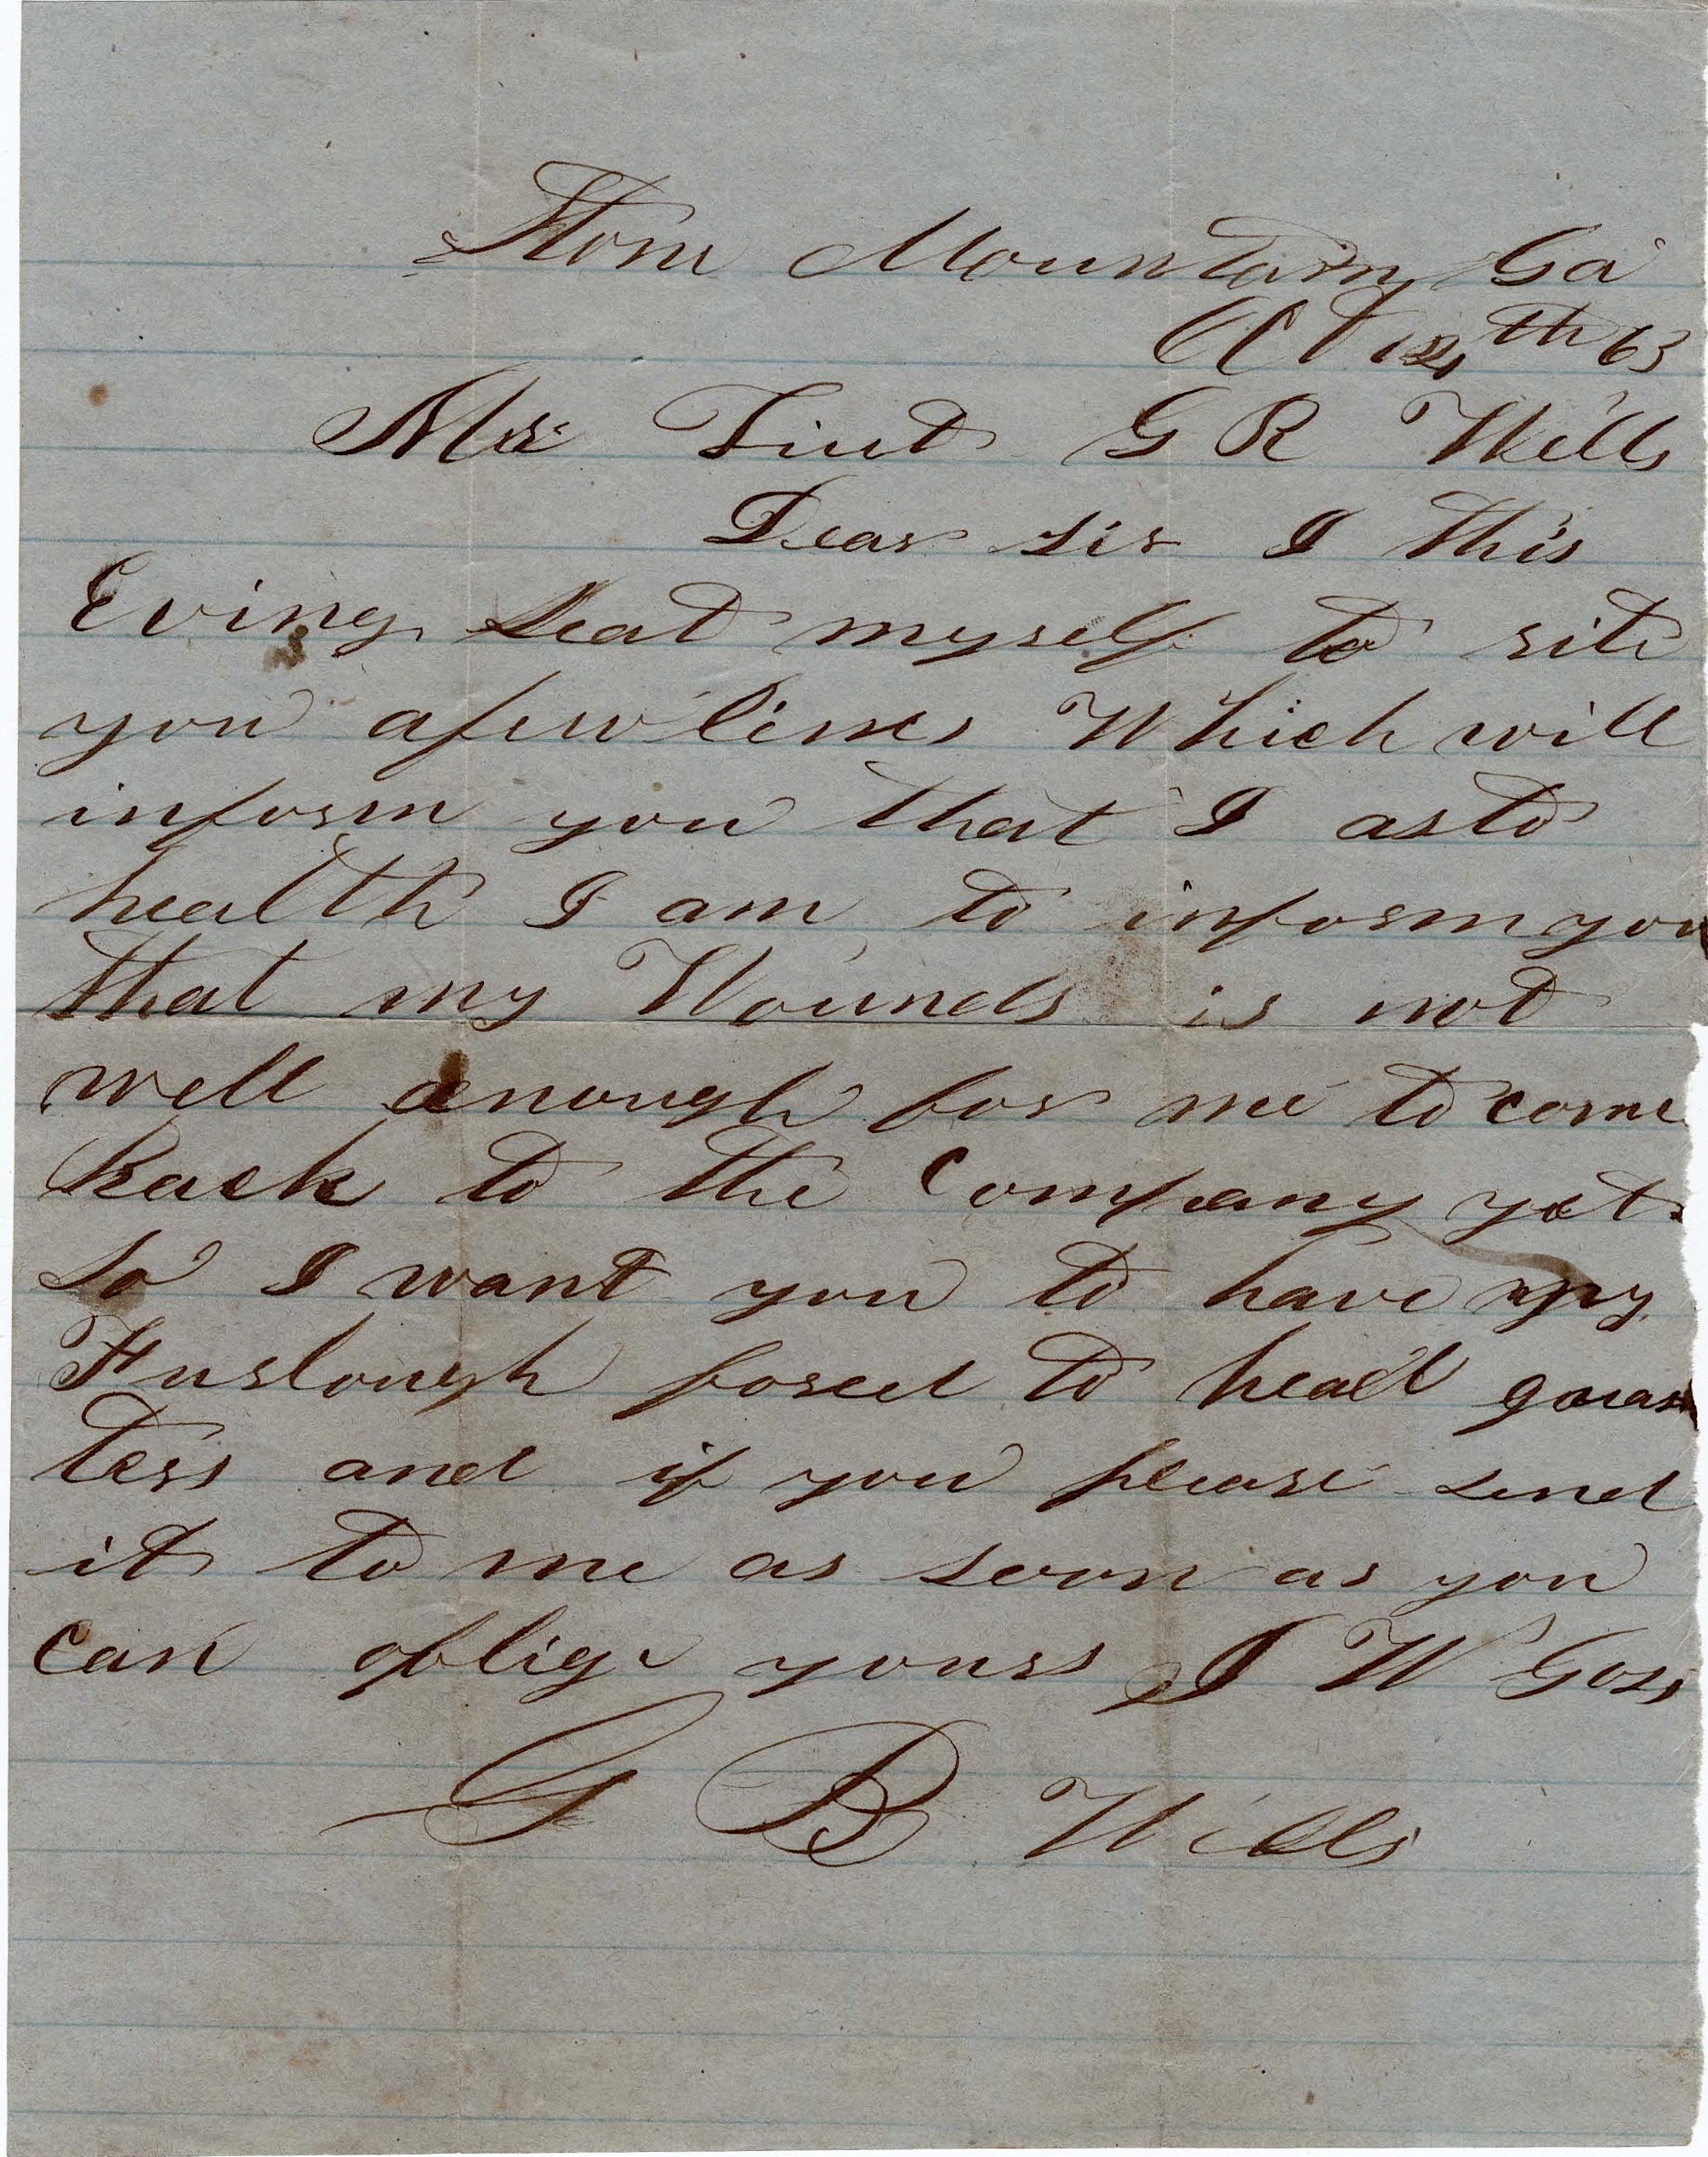 Stone Mountain, Ga
Oct 12th 63
Mr Liut G R Wells
Dear sir I this
Eving seat myself to rite
you a few lines Which will
inform you that I as to
health I am to inform you
that my Wounds is not
well enough for me to come
Back to the Company yet
So I want you to have my
Furlough forred to head quar
ters and if you please send
it to me as soon as you
can oblige yours J W Goss
G B Wells